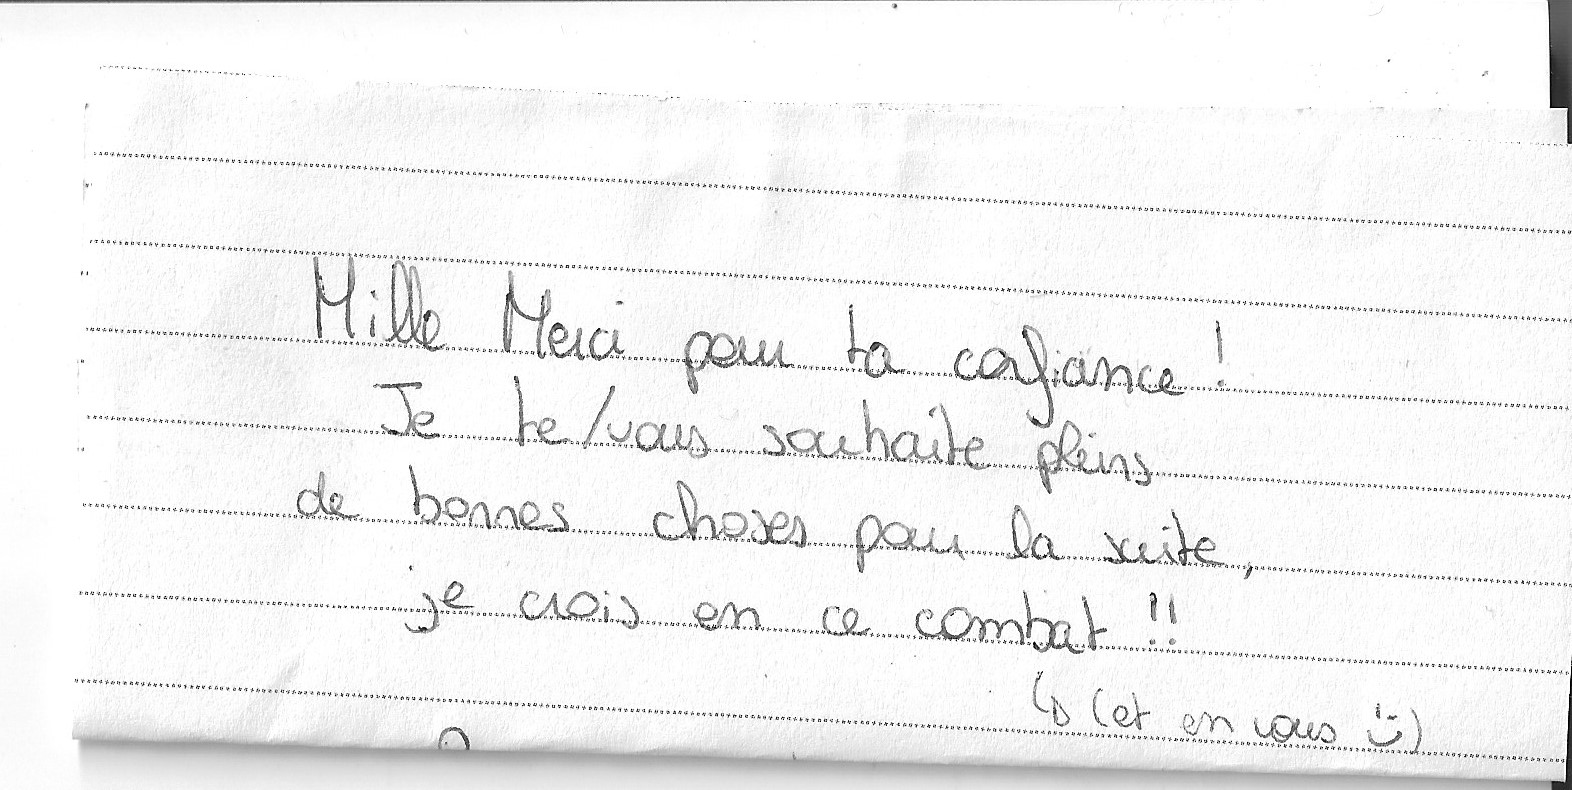 Mille Merci pour ta confiance !
Je te/vous souhaite pleins
de bonnes choses pour la suite,
je crois en ce combat !!
↳ (et en vous :))